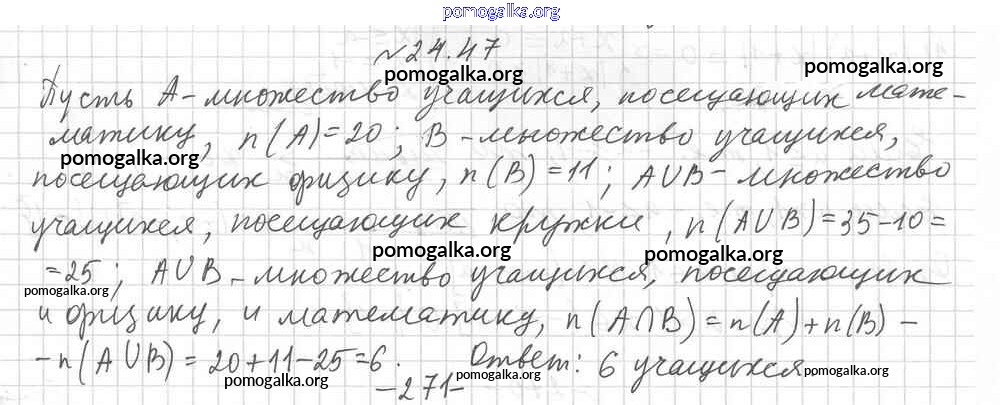 pomogalka.org
№24.47
pomogalka.org
pomogalka.org
Пусть A-множество учащихся, посещающих мате-
матику, n(A)=20; B-множество учащихся,
pomogalka.org
посещающих физику, n(B)=11; A∪B-множество
учащихся, посещающих кружки, n(A∪B)=35-10=
pomogalka.org
pomogalka.org
=25; A∪B-множество учащихся, посещающих
pomogalka.org
и физику, и математику, n(A∩B)=n(A)+n(B)-
-n(A∪B)=20+11-25=6. Ответ: 6 учащихся
pomogalka.org
pomogalka.org
pomogalka.org
-271-